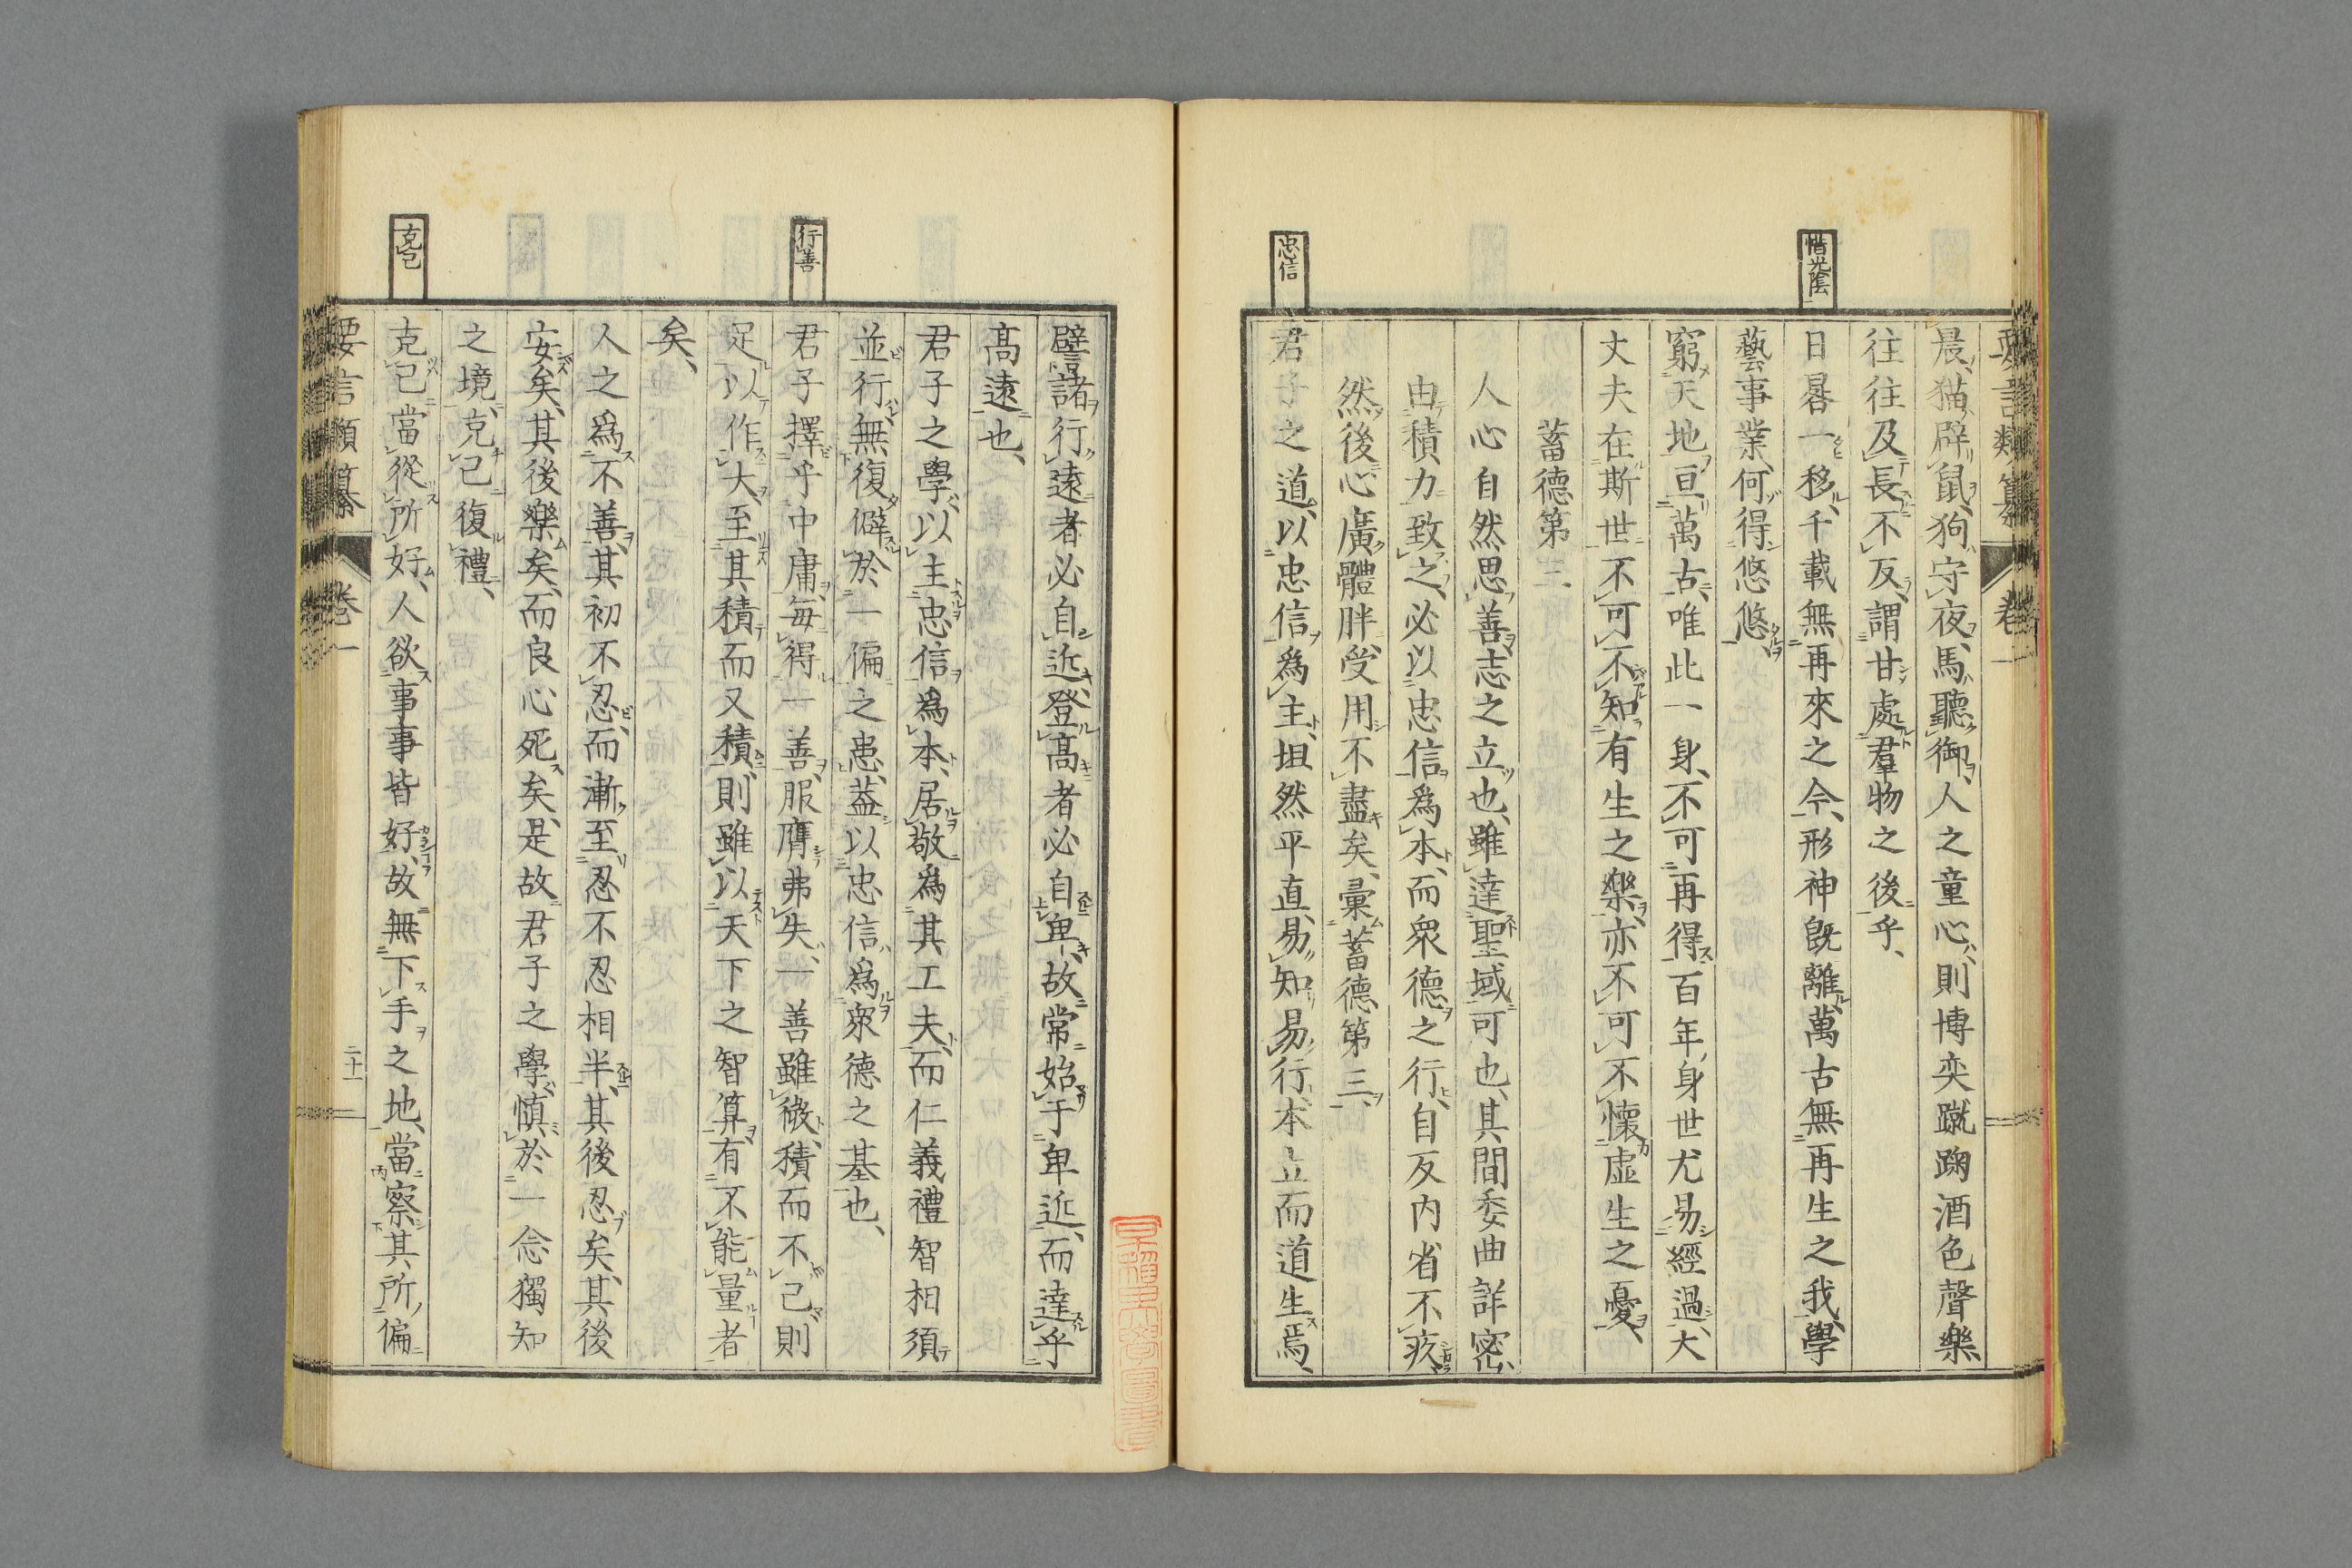 要言類纂 卷一
惜光陰
晨、猫辟鼠、狗守夜、馬聽御、人之童心、則博奕蹴踘酒色聲樂、
往往及長不反、謂甘處羣物之後乎、
日晷一移、千載無再來之今、形神旣離、萬古無再生之我、學
藝事業、何得悠悠、
窮天地亘萬古、唯此一身、不可再得、百年身世尤易經過、大
丈夫在斯世、不可不知有生之樂、亦不可不懷虛生之憂、
蓄德第三
人心自然思善、志之立也、雖達聖域可也、其間委曲詳密、
由積力致之、必以忠信爲本、而衆德之行、自反内省不疚、
然後心廣體胖、受用不盡矣、彙蓄德第三、
忠信
君子之道、以忠信爲主、坦然平直、易知易行、本立而道生焉、
譬諸行遠者必自近、登高者必自卑、故常始于卑近、而達乎
高遠也、
君子之學、以主忠信爲本、居敬爲其工夫、而仁義禮智相須
並行、無復僻於一偏之患、蓋以忠信爲衆德之基也、
行善
君子擇乎中庸、每得一善、服膺弗失、一善雖微、積而不已、則
足以作大、至其積而又積、則雖以天下之智算、有不能量者
矣、
人之爲不善、其初不忍、而漸至忍不忍相半、其後忍矣、其後
安矣、其後樂矣、而良心死矣、是故君子之學、慎於一念獨知
之境、克己復禮、
克己
克己當從所好、人欲事事皆好、故無下手之地、當察其所偏
要言類纂 卷一 二十一